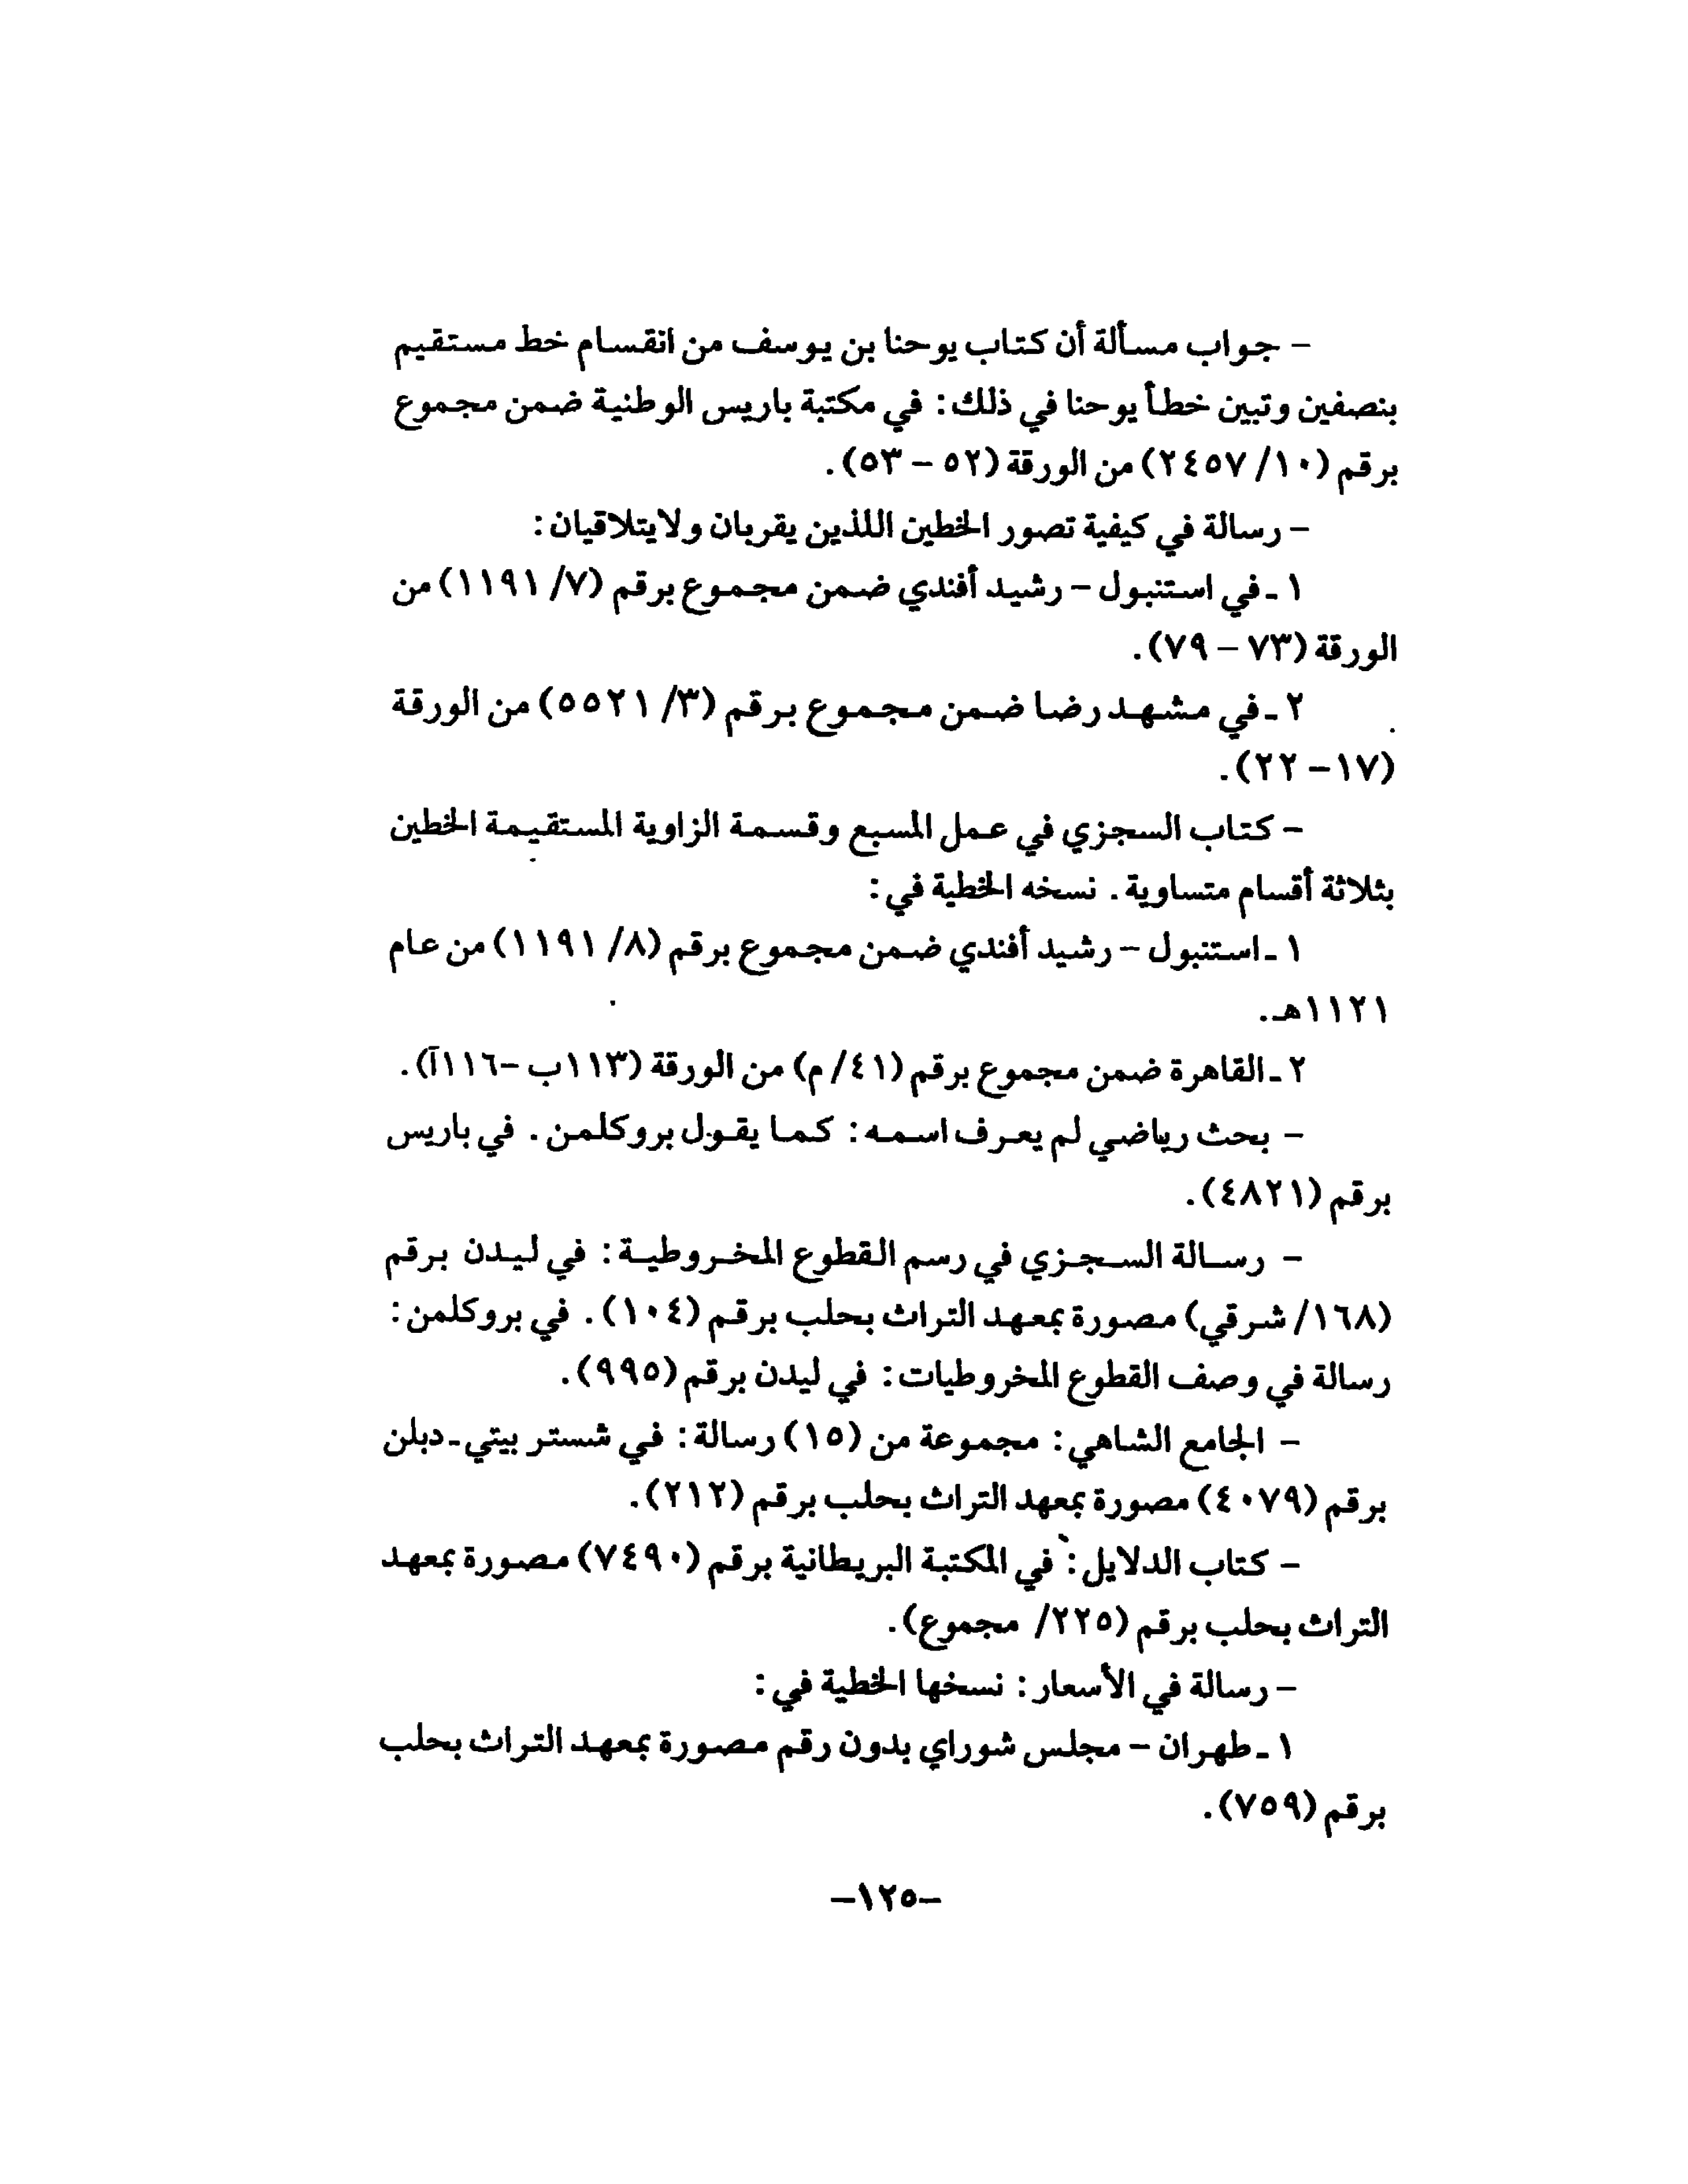 – جواب مسألة أن كتاب يوحنا بن يوسف من انقسام خط مستقيم
بنصفين وتبين خطأ يوحنا في ذلك: في مكتبة باريس الوطنية ضمن مجموع
برقم (١٠/ ٢٤٥٧) من الورقة (٥٢ – ٥٣).
– رسالة في كيفية تصور الخطين اللذين يقربان ولايتلاقيان:
١ ـ في استنبول – رشيد أفندي ضمن مجموع برقم (٧/ ١١٩١) من
الورقة (٧٣ – ٧٩).
٢ ـ في مشهد رضا ضمن مجموع برقم (٣/ ٥٥٢١) من الورقة
(١٧– ٢٢).
– كتاب السجزي في عمل المسبع وقسمة الزاوية المستقيمة الخطين
بثلاثة أقسام متساوية. نسخه الخطية في:
١ ـ استنبول – رشيد أفندي ضمن مجموع برقم (٨/ ١١٩١) من عام
١١٢١هـ.
٢ ـ القاهرة ضمن مجموع برقم (٤١/ م) من الورقة (١١٣ب –١١٦آ).
– بحث رياضي لم يعرف اسمه: كما يقول بروكلمن. في باريس
برقم (٤٨٢١).
– رسالة السجزي في رسم القطوع المخروطية: في ليدن برقم
(١٦٨/ شرقي) مصورة بمعهد التراث بحلب برقم (١٠٤). في بروكلمن:
رسالة في وصف القطوع المخروطيات: في ليدن برقم (٩٩٥).
– الجامع الشاهي: مجموعة من (١٥) رسالة: في شستر بيتي ـ دبلن
برقم (٤٠٧٩) مصورة بمعهد التراث بحلب برقم (٢١٢).
– كتاب الدلايل: في المكتبة البريطانية برقم (٧٤٩٠) مصورة بمعهد
التراث بحلب برقم (٢٢٥/ مجموع).
– رسالة في الأسعار: نسخها الخطية في:
١ ـ طهران – مجلس شوراي بدون رقم مصورة بمعهد التراث بحلب
برقم (٧٥٩).
–١٢٥–